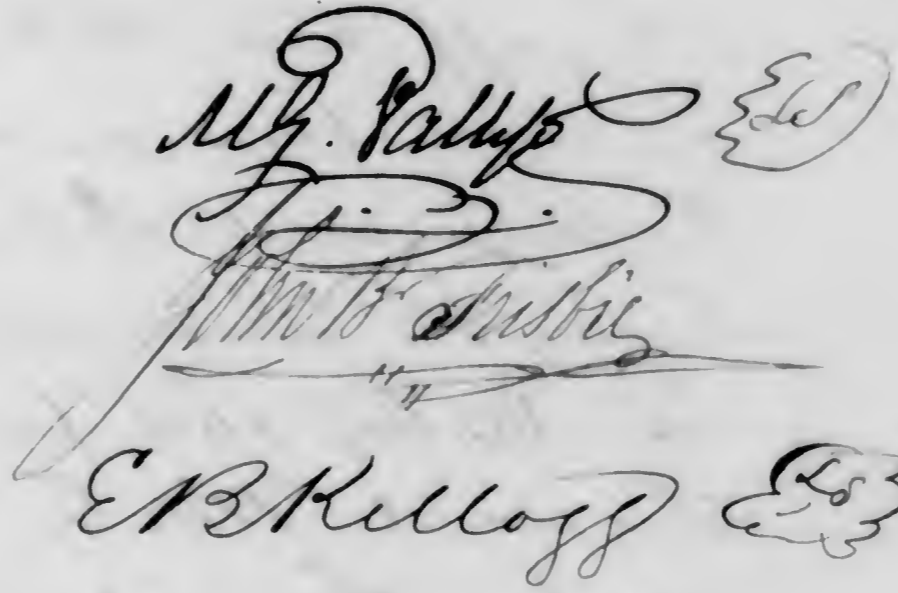 M. G. Vallejo LS
John B Frisbie
E B Kellogg LS